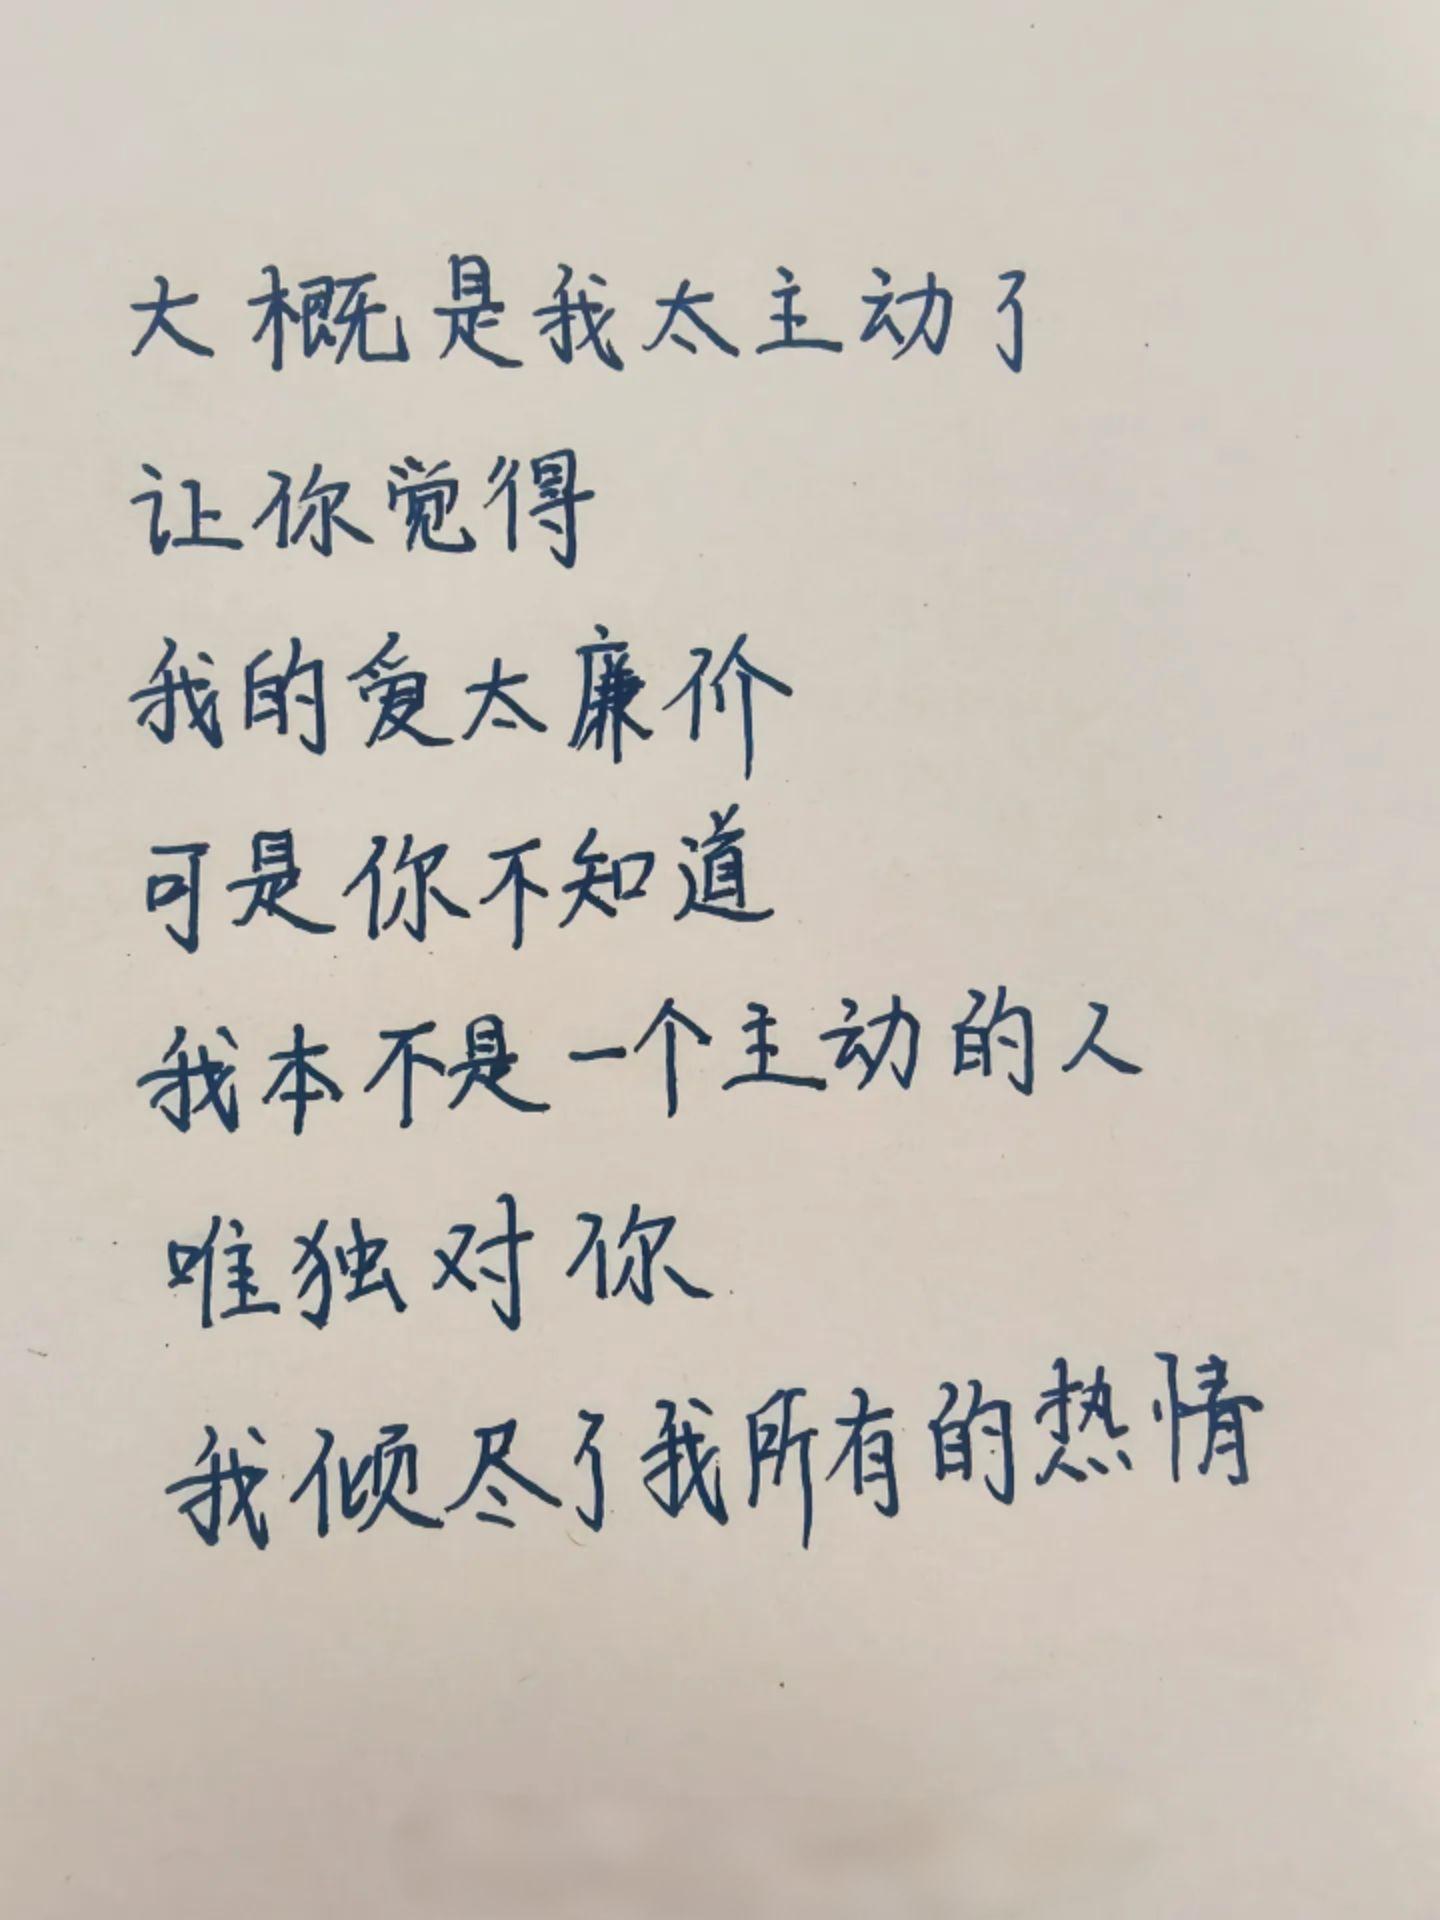 大概是我太主动了
让你觉得
我的爱太廉价
可是你不知道
我本不是一个主动的人
唯独对你
我倾尽了我所有的热情